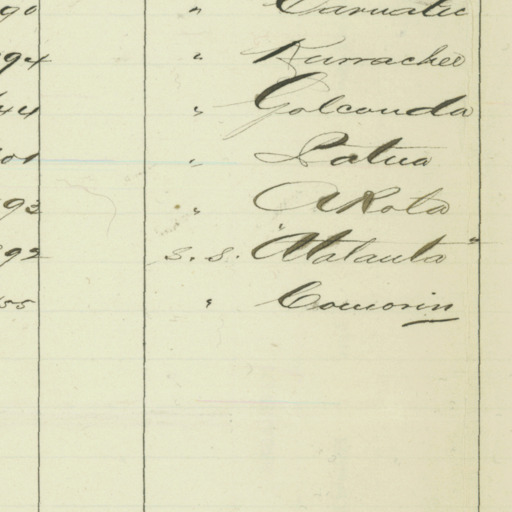 90 " Carnatic
94 " Kurrachee
44 " Golconda
01 " Patna
93 " Akola
92 s.s. "Atalanta"
55 " Comorin